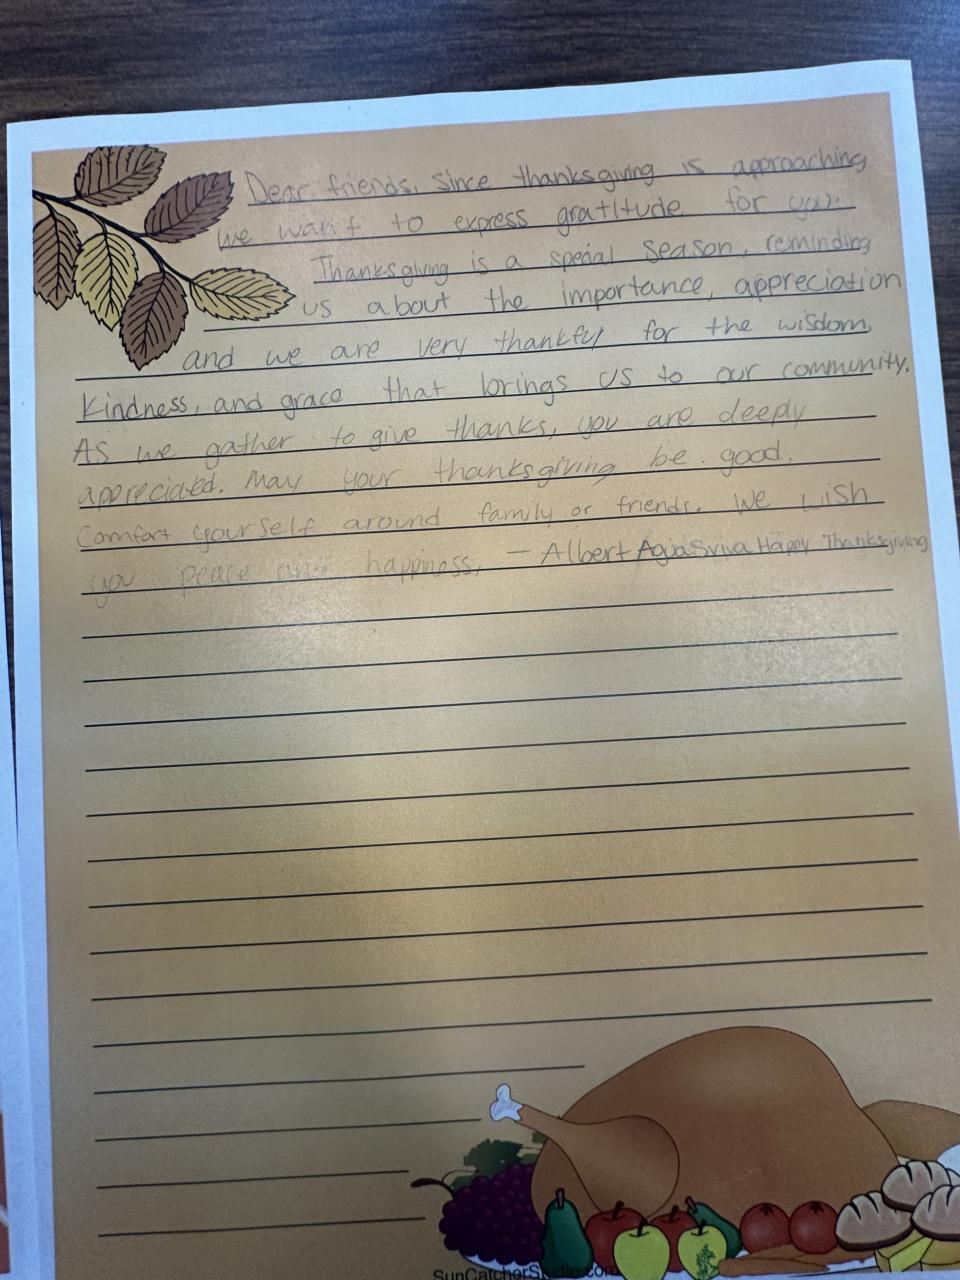 Dear friends, Since thanksgiving is approaching
we want to express gratitude for you.
Thanksgiving is a special Season, reminding
us about the importance, appreciation
and we are very thankful for the wisdom,
Kindness, and grace that brings us to our community.
As we gather to give thanks, you are deeply
appreciated. May your thanksgiving be good.
Comfort yourself around family or friends. We wish
you peace and happiness, — Albert Happy Thanksgiving
SunCatcherStudio.com